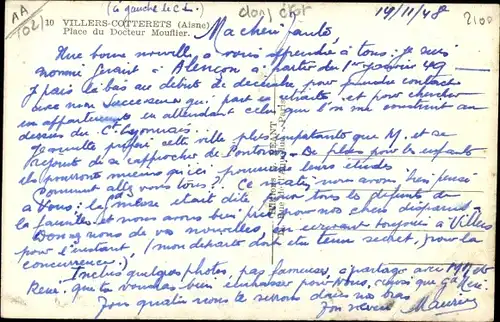 AA
TO2
(à gauche le C.L.)
19/11/48
2100
10 VILLERS-COTTERETS (Aisne)
Place du Docteur Mouflier.
Ma chérie
Une bonne nouvelle à vous apprendre à tous : Je suis
nommé Gérant à Alençon à partir du 1er janvier 49
Je pars là bas au début de décembre, pour prendre contact
avec mon successeur qui part en retraite, et pour chercher
un appartement en attendant celui que l'on va construire au
dessus du Ct Lyonnais.
cette ville plus importante que
réjouit de se rapprocher de Pontorson. De plus pour les enfants
ils pourront mieux qu'ici poursuivre leurs études
Comment allez vous tous ? Ce matin nous avons bien pensé
à Vous : la messe était dite pour tous les défunts de
la famille et nous avons bien prié pour nos chers disparus
Donnez nous de vos nouvelles, en écrivant toujours à Villers
pour l'instant (mon départ doit être tenu secret, pour la
concurrence.)
Inclus quelques photos, pas fameuses, à partager avec
René, que tu voudras bien embrasser pour nous, ainsi que
Tous quatre nous te serrons dans nos bras
Ton Maurice